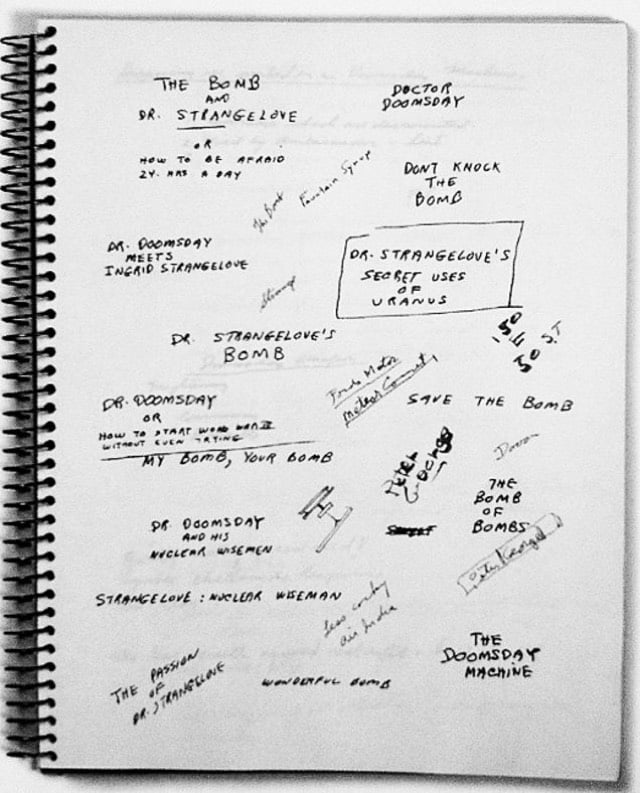 THE BOMB
AND
DR. STRANGELOVE
OR
HOW TO BE AFRAID
24 HRS A DAY
DOCTOR
DOOMSDAY
DONT KNOCK
THE
BOMB
The Bomb
Fountain
DR. DOOMSDAY
MEETS
INGRID STRANGELOVE
DR. STRANGELOVE'S
SECRET USES
OF
URANUS
Strange
DR. STRANGELOVE'S
BOMB
150
E
50 S.T
SAVE THE BOMB
DR. DOOMSDAY
OR
HOW TO START WORLD WAR III
WITHOUT EVEN TRYING
MY BOMB, YOUR BOMB
Peter
George
THE
BOMB
OF
BOMBS
DR. DOOMSDAY
AND HIS
NUCLEAR WISEMEN
Peter George
STRANGELOVE: NUCLEAR WISEMAN
Leo
Air India
THE
DOOMSDAY
MACHINE
THE PASSION
OF
DR. STRANGELOVE
WONDERFUL BOMB